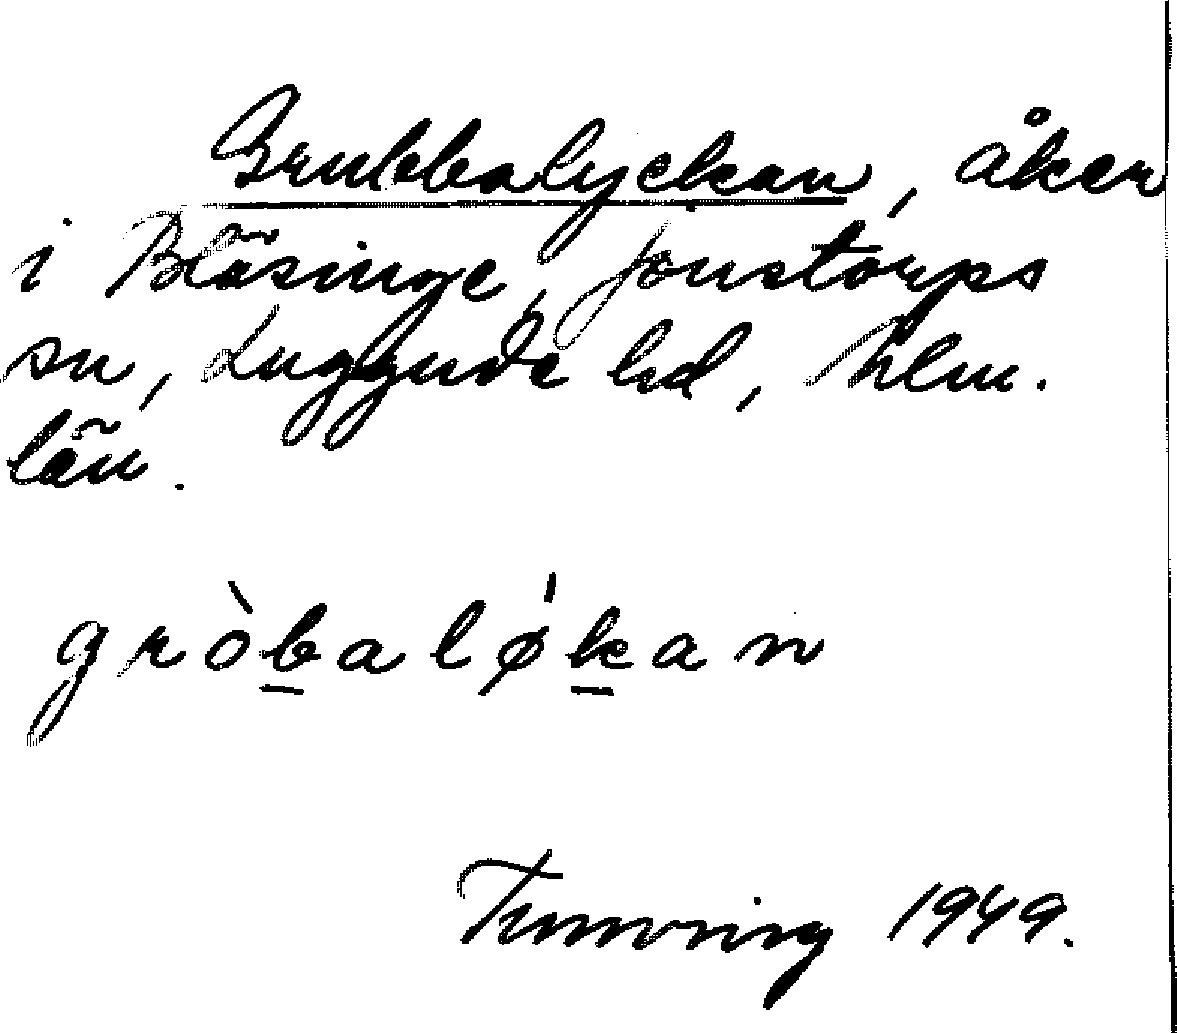 Grubbalyckan, åker
i Bläsinge, Jonstorps
sn, Luggude hd, Mlm.
län.
gròbalǿkan
1949.